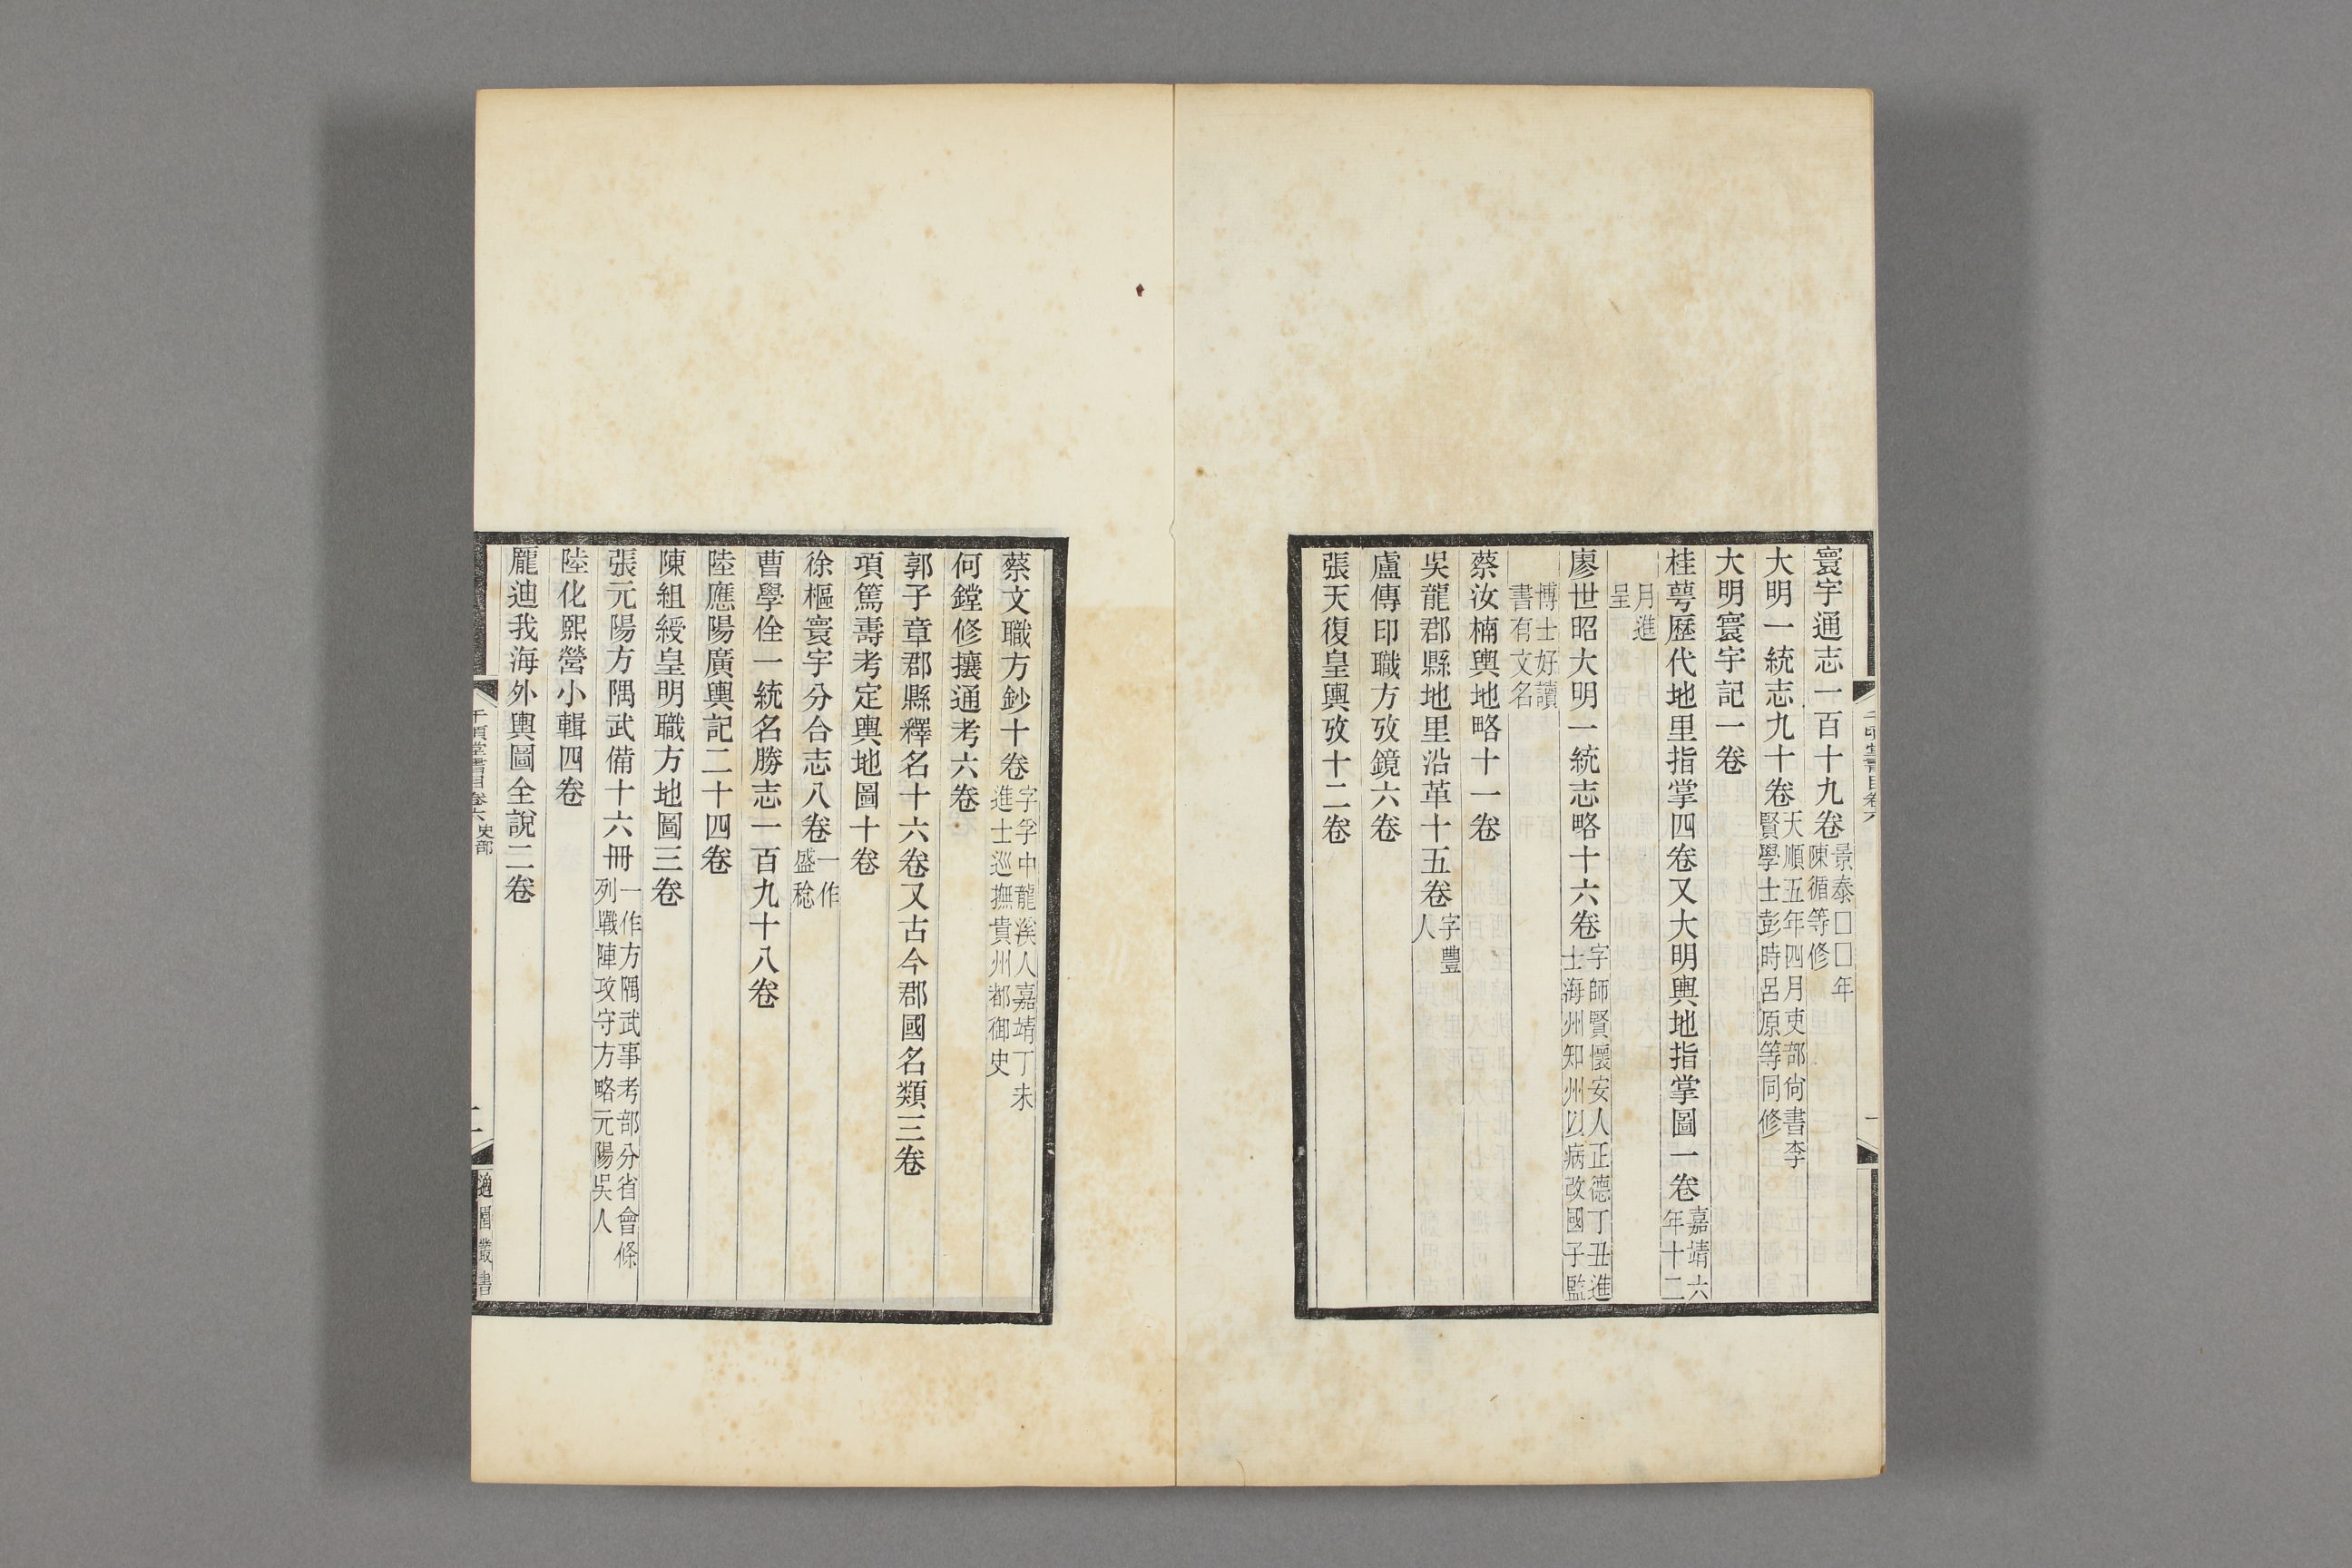 寰宇通志一百十九卷景泰□□年陳循等修
大明一統志九十卷天順五年四月吏部尙書李賢學士彭時呂原等同修
大明寰宇記一卷
桂萼歷代地里指掌四卷又大明輿地指掌圖一卷嘉靖六年十二
月進呈
廖世昭大明一統志略十六卷字師賢懷安人正德丁丑進士海州知州以病改國子監
博士好讀書有文名
蔡汝楠輿地略十一卷
吳龍郡縣地里沿革十五卷字豐人
盧傳印職方攷鏡六卷
張天復皇輿攷十二卷
蔡文職方鈔十卷字孚中龍溪人嘉靖丁未進士巡撫貴州都御史
何鏜修攘通考六卷
郭子章郡縣釋名十六卷又古今郡國名類三卷
項篤壽考定輿地圖十卷
徐樞寰宇分合志八卷一作盛稔
曹學佺一統名勝志一百九十八卷
陸應陽廣輿記二十四卷
陳組綬皇明職方地圖三卷
張元陽方隅武備十六冊一作方隅武事考部分省會條列戰陣攻守方略元陽吳人
陸化熙營小輯四卷
龐迪我海外輿圖全說二卷
千頃堂書目卷六 史部
二
適園叢書